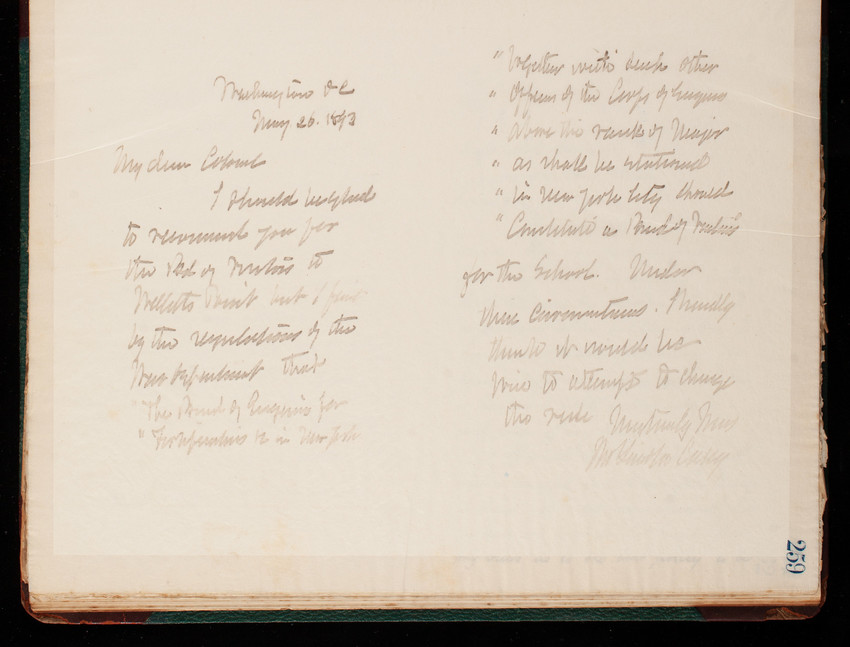 Washington D C
May 26. 1893
My dear Colonel
I should be glad
to recommend you for
the Bd of Visitors to
Willetts Point but I find
by the regulations of the
War Department that
"The Board of Engineers for
"Fortifications &c in New York
"Together with such other
"Officers of the Corps of Engineers
"above the rank of Major
"as shall be stationed
"in New York City should
"Constitute a Board of Visitors"
for the School. Under
these circumstances. I hardly
think it would be
wise to attempt to change
the rule Very truly Yours
Thos Lincoln Casey
259